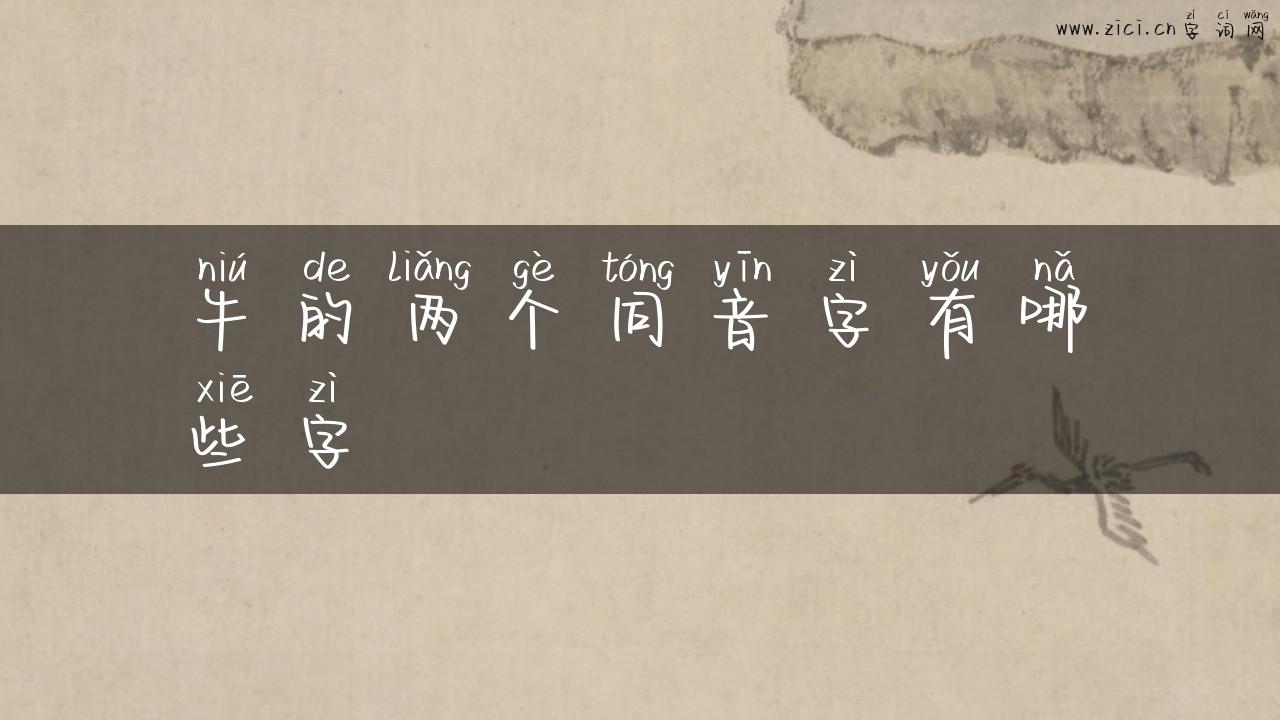 zì cí wǎng
www.zici.cn 字 词 网
niú de liǎng gè tóng yīn zì yǒu nǎ
牛 的 两 个 同 音 字 有 哪
xiē zì
些 字